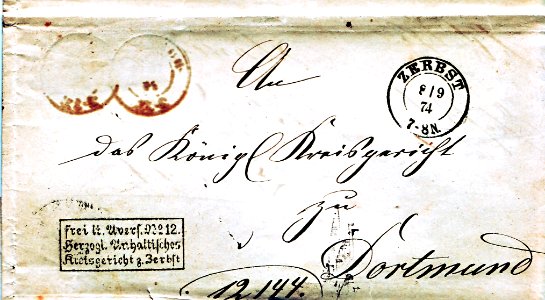 An
ZERBST
8/9
74
7-8N.
das Königl Kreisgericht
zu
Dortmund
frei lt. Avers. No 12.
Herzogl. Anhaltisches
Kreisgericht z. Zerbst
12,144.